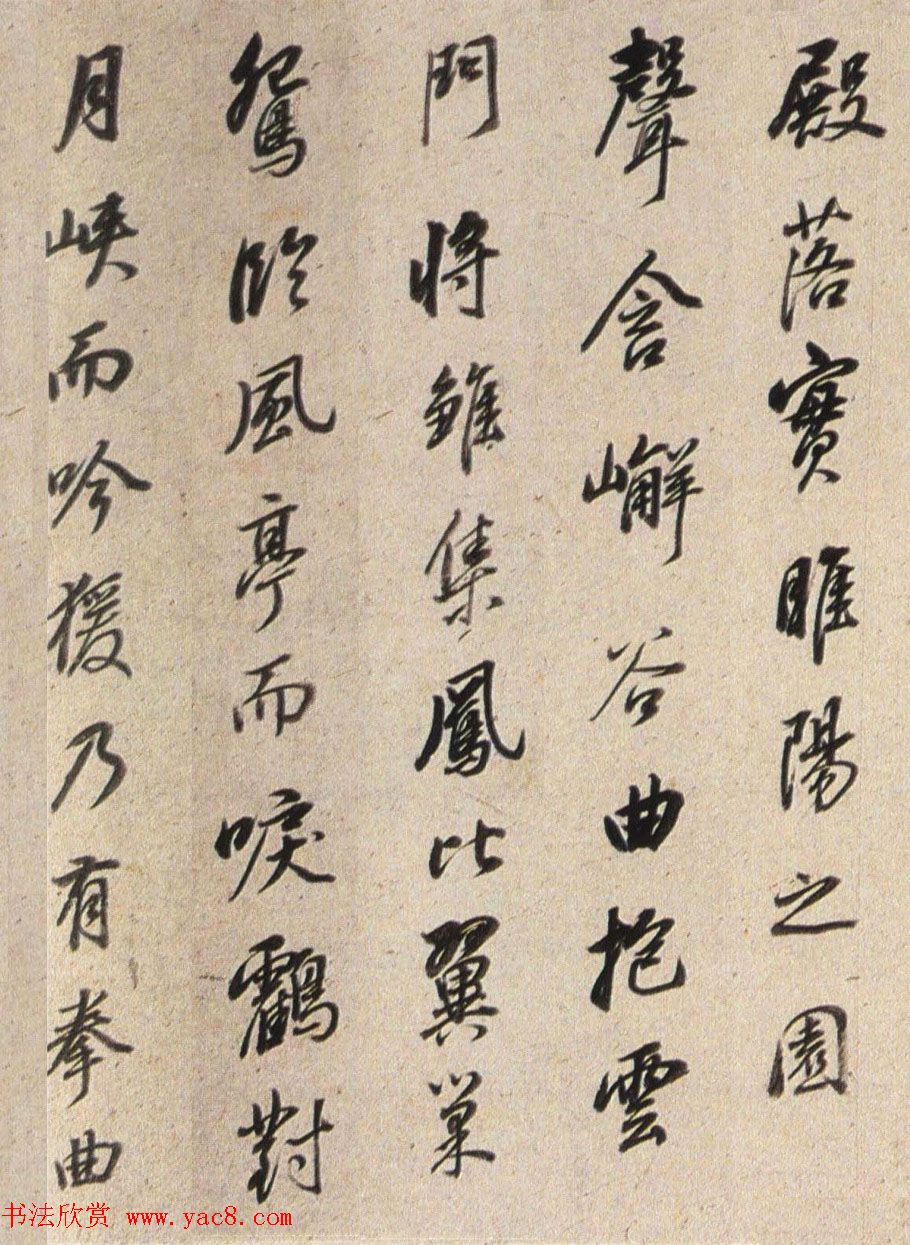 殿落實睢陽之園
聲含嶰谷曲抱雲
門將雛集鳳比翼巢
鴛臨風亭而唳鶴對
月峽而吟猨乃有拳曲
书法欣赏 www.yac8.com